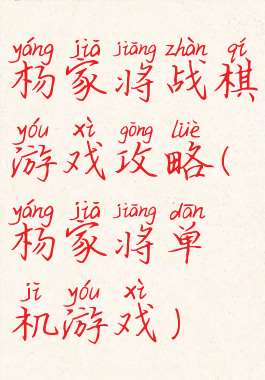 yáng jiā jiāng zhàn qí
杨家将战棋
yóu xì gōng lüè
游戏攻略(
yáng jiā jiāng dān
杨家将单
jī yóu xì
机游戏)